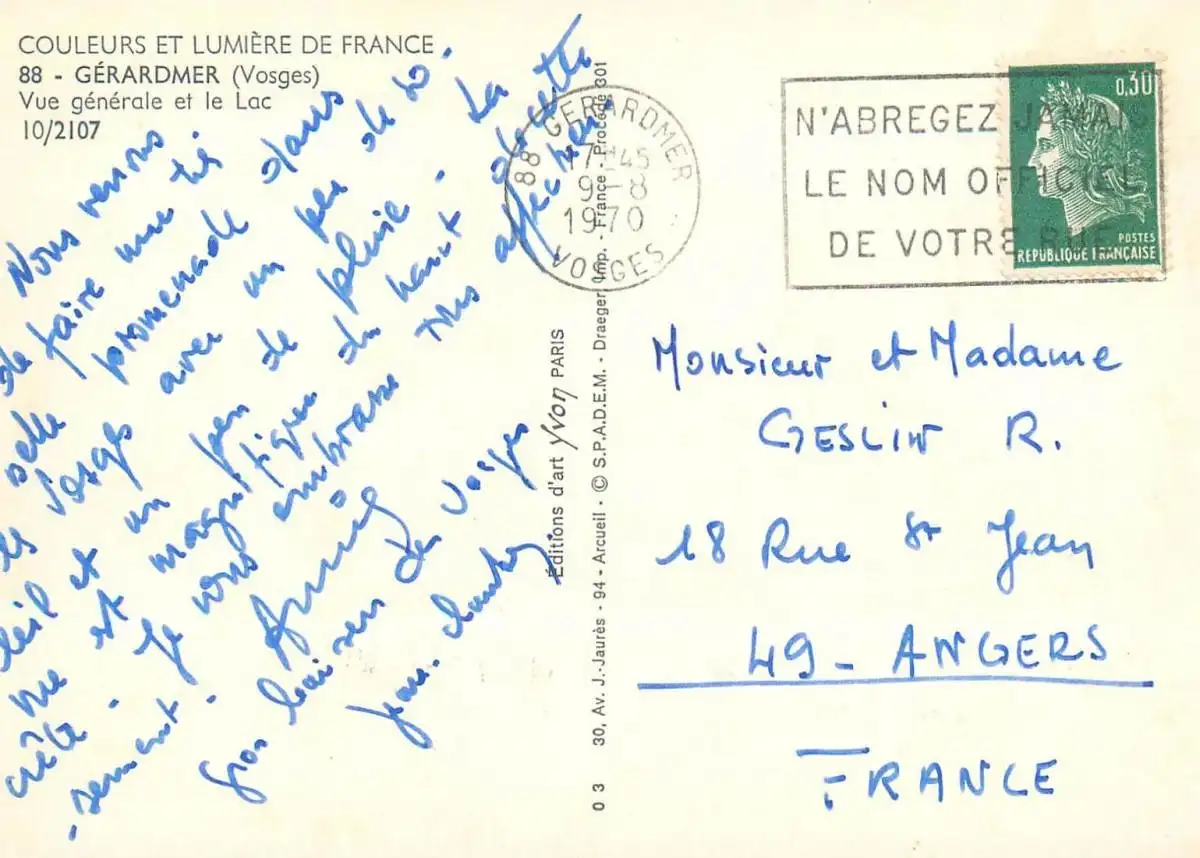 COULEURS ET LUMIÈRE DE FRANCE
88 - GÉRARDMER (Vosges)
Vue générale et le Lac
10/2107
Nous venons
de faire une très
belle promenade dans
les Vosges avec un peu de so-
leil et un peu de pluie. La
vue est magnifique du haut de cette
crête. Je vous embrasse très affectueu-
-sement.
Annie
gros baisers des Vosges
Jean-
Éditions d'art Yvon PARIS
30, Av. J.-Jaurès - 94 - Arcueil - © S.P.A.D.E.M. - Draeger Imp. - France - Procédé 301
0 3
88 GERARDMER
17H45
9-8
1970
VOSGES
N'ABREGEZ JAMAIS
LE NOM OFFICIEL
DE VOTRE RUE
0,30
POSTES
RÉPUBLIQUE FRANÇAISE
Monsieur et Madame
GESLIN R.
18 Rue St Jean
49 - ANGERS
FRANCE